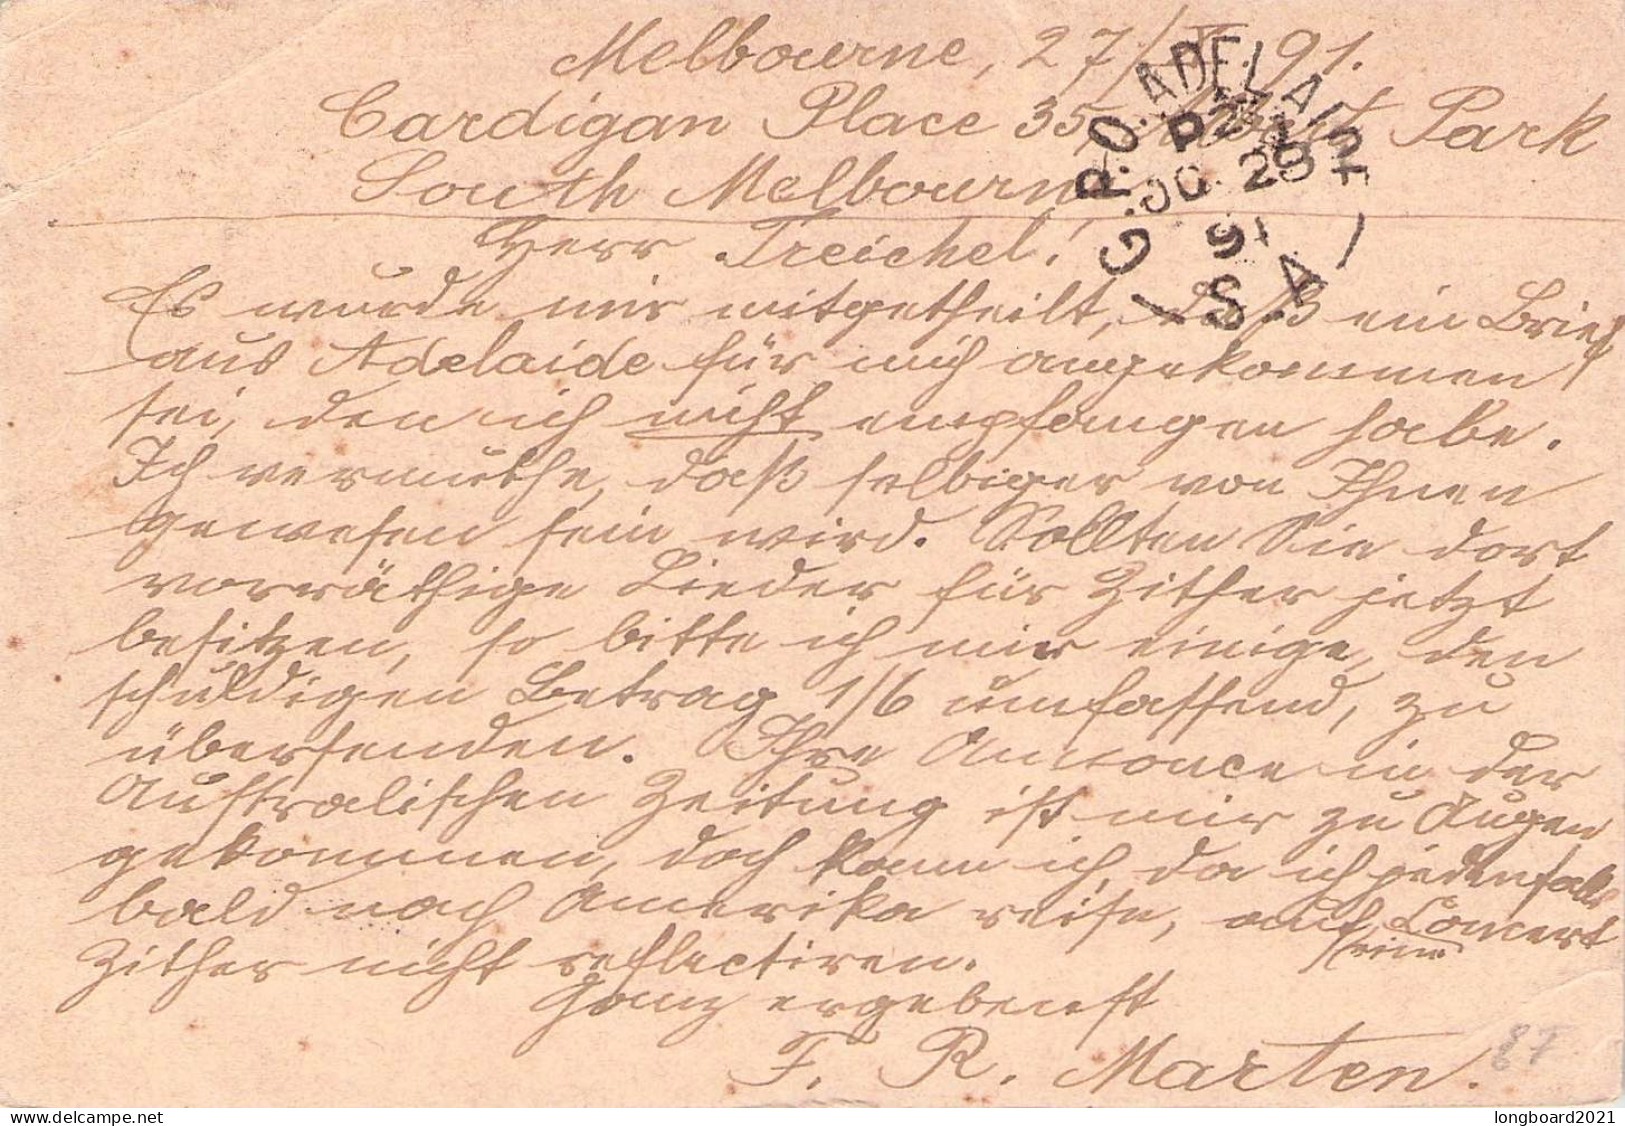 Melbourne, 27/X 91.
Cardigan Place 35, Albert Park
South Melbourne
Herr Treichel!
Es wurde mir mitgetheilt, daß ein Brief
aus Adelaide für mich angekommen
sei, den ich nicht empfangen habe.
Ich vermuthe, daß selbiger von Ihnen
gewesen sein wird. Sollten Sie dort
vorräthige Lieder für Zither jetzt
besitzen, so bitte ich mir einige, den
schuldigen Betrag 1/6 umfassend, zu
übersenden. Ihre Annonce in der
Australischen Zeitung ist mir zu Augen
gekommen, doch kann ich, da ich jedenfalls
bald nach Amerika reise, auf Concert
eine
Zither nicht reflectiren.
Ganz ergebenst
F. R. Marten.
87
G.P.O. ADELAIDE
OC 28
91
S.A
delcampe.net
longboard2021